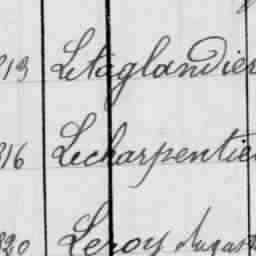 819 Letaglandier
816 Lecharpentier
820 Leroy August